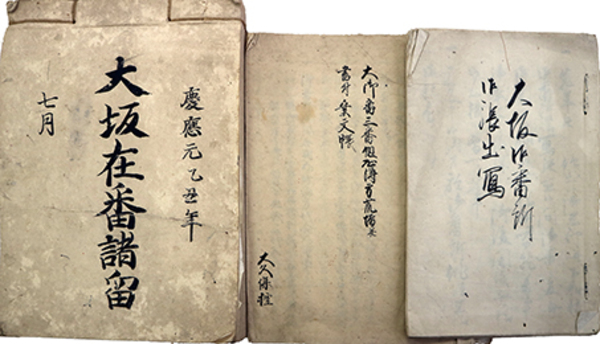 慶應元乙丑年
大坂在番諸留
七月
大御番三番組心得方荒増并
書付案文帳
大久保控
大坂御番所
御張出寫